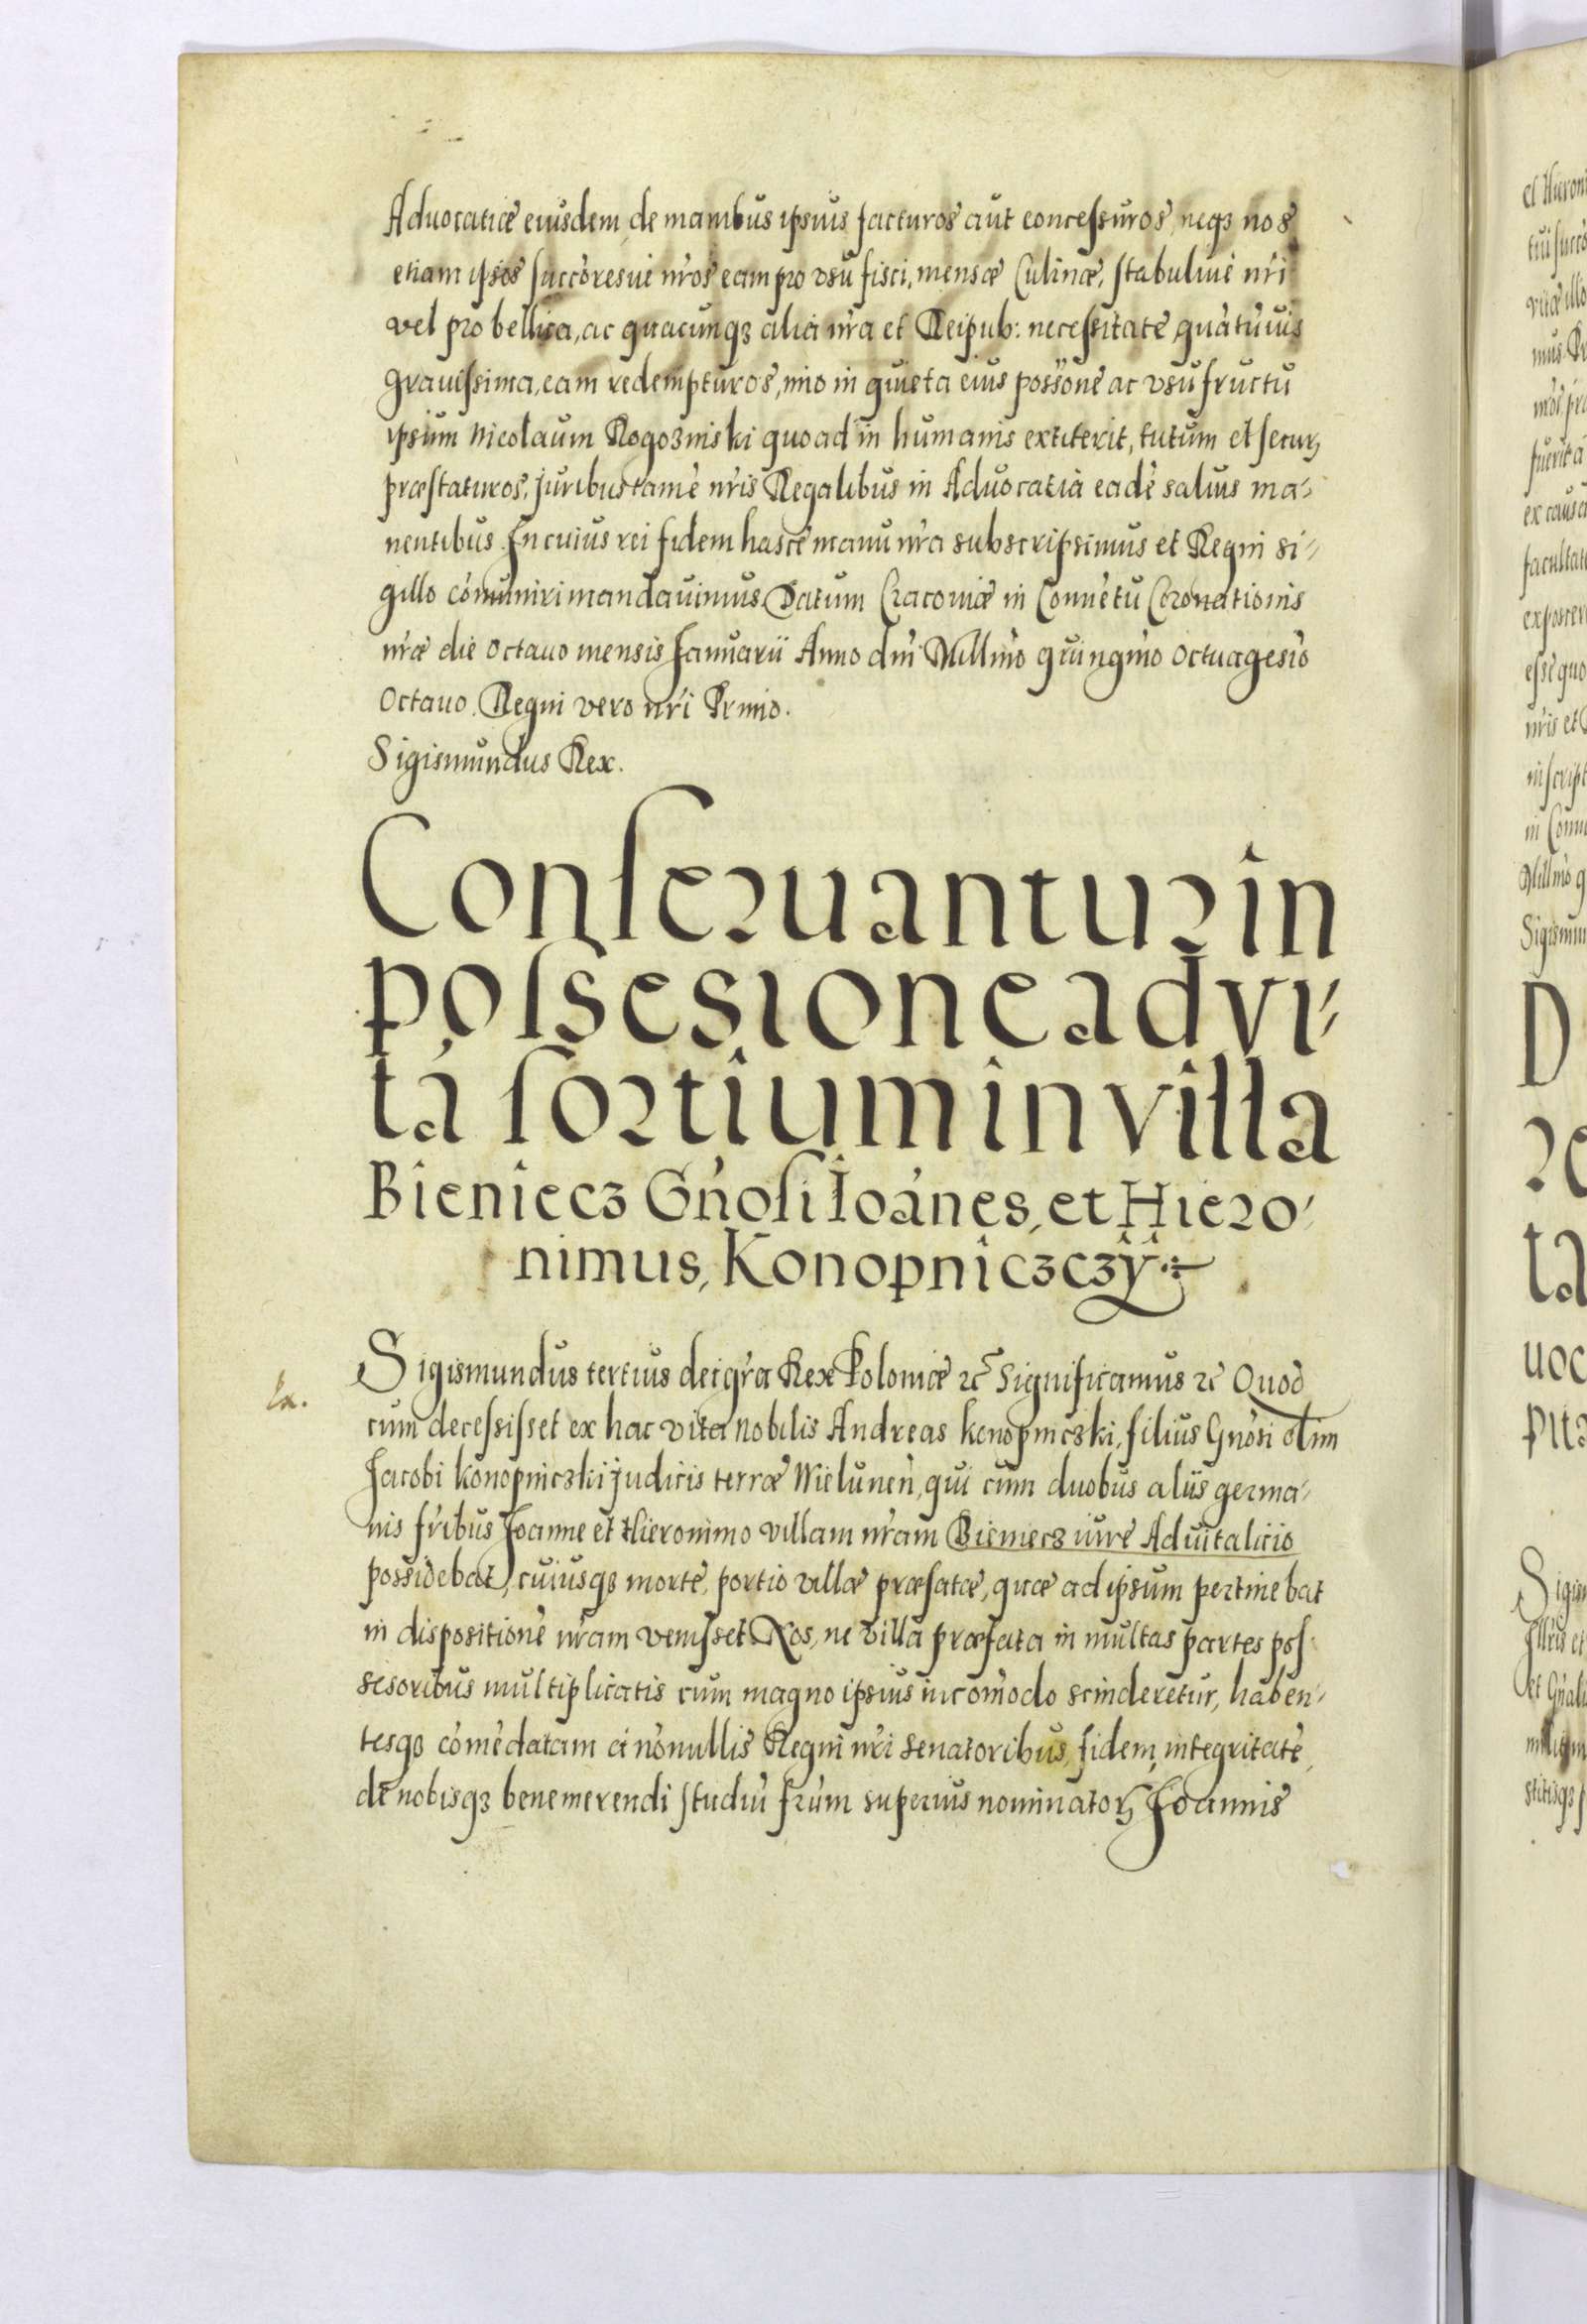 Aduocatiæ eiusdem, de manibus ipsius facturos aut concessuros, neqȝ nos
etiam ipsos succoresue nr̃os eam pro vsu fisci, mensæ Culinæ, stabuliue nr̃i
vel pro bellica, ac quacunqȝ alia nr̃a et Reipub: necessitate, quãtũuis
grauissima, eam redempturos, imo in quieta eius possõne ac vsufructu
ipsum Nicolaum Rogozinski quoad in humanis extiterit, tutum et secuꝝ
præstaturos, Juribus tamẽ nr̃is Regalibus in Aduocatia eadẽ saluis ma-
nentibus. In cuius rei fidem hasce manu nr̃a subscripsimus et Regni si-
gillo cõmuniri mandauimus. Datum Cracouiæ in Conuẽtu Coronationis
nr̃æ die octauo mensis Januarii Anno dñi Millm̃o quingm̃o octuagesio
octauo. Regni vero nr̃i Primo.
Sigismundus Rex.
Conseruantur in
possesione ad vi-
tã sortium in villa
Bieniecz Gñosi Ioãnes, et Hiero-
nimus, Konopniczczÿ
Sigismundus tertius dei gr̃a Rex Poloniæ ꝛc̃ Significamus ꝛc̃ Quod
cum decessisset ex hac vita nobilis Andreas Konopniczki, filius Gnõsi olim
Jacobi Konopniczki judicis terræ Wielunen̄, qui cum duobus aliis germa-
nis fr̃ibus Joanne et Hieronimo villam nr̃am Bieniecz iure Aduitalicio
possidebat, cuiusqȝ morte, portio villæ præfatæ, quæ ad ipsum pertinebat
in dispositionẽ nr̃am venisset. Nos, ne villa præfata in multas partes pos-
sesoribus multiplicatis cum magno ipsius incõmodo scinderetur, haben-
tesqȝ cõmẽdatam a nõnullis Regni nr̃i senatoribus, fidem, integritatẽ,
de nobisqȝ benemerendi studiũ fr̃um superius nominatoꝝ Joannis